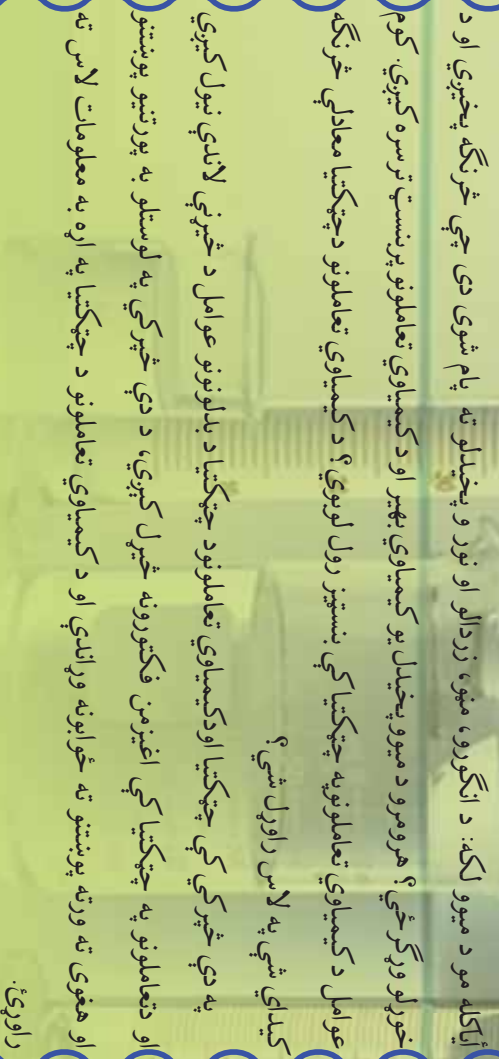 آیاکله مو د میوو لکه: د انگورو، منو، زردالو او نور و پخیدلو ته پام شوی دی چي څرنگه پخیږي او د
خوړلو وړگرځي؟ هرومرو د میوو پخیدل یو کیمیاوي بهیر او د کیمیاوي تعاملونو پرنسټ تر سره کیږي. کوم
عوامل د کیمیاوي تعاملونو په چټکتیا کې بنسټیز رول لوبوي؟ د کیمیاوي تعاملونو دچټکتیا معادلې څرنگه
کیدای شي په لاس راوړل شي؟
په دې څپرکي کې چټکتیا اودکیمیاوي تعاملونود چټکتیا د بدلونونو عوامل د څېړنې لاندې نیول کیږي
او دتعاملونو په چټکتیا کې اغیزمن فکتورونه څیړل کیږي، د دې څپرکي په لوستلو به پورتنیو پوښتنو
او هغوی ته ورته پوښتنو ته ځوابونه وړاندې او د کیمیاوي تعاملونو د چټکتیا په اړه به معلومات لاس ته
راوړئ.